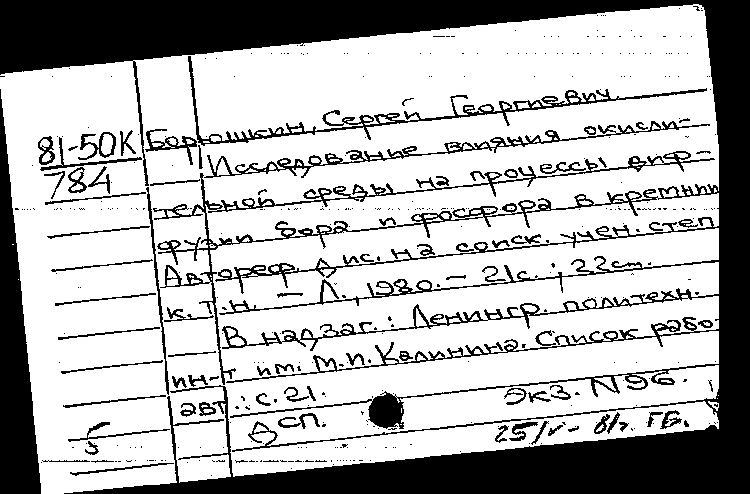 Борюшкин, Сергей Георгиевич.
81-50К
784
Исследование влияния окисли-
тельной среды на процессы диф-
фузии бора и фосфора в кремнии
Автореф. дис. на соиск. учен. степ
к. т. н. – Л., 1980. – 21с. ; 22см.
В надзаг.: Ленингр. политехн.
ин-т им. М.И. Калинина. Список рабо
авт.: с. 21.
ДСП. Экз. N96.
5
25/V - 81г. ГБ.